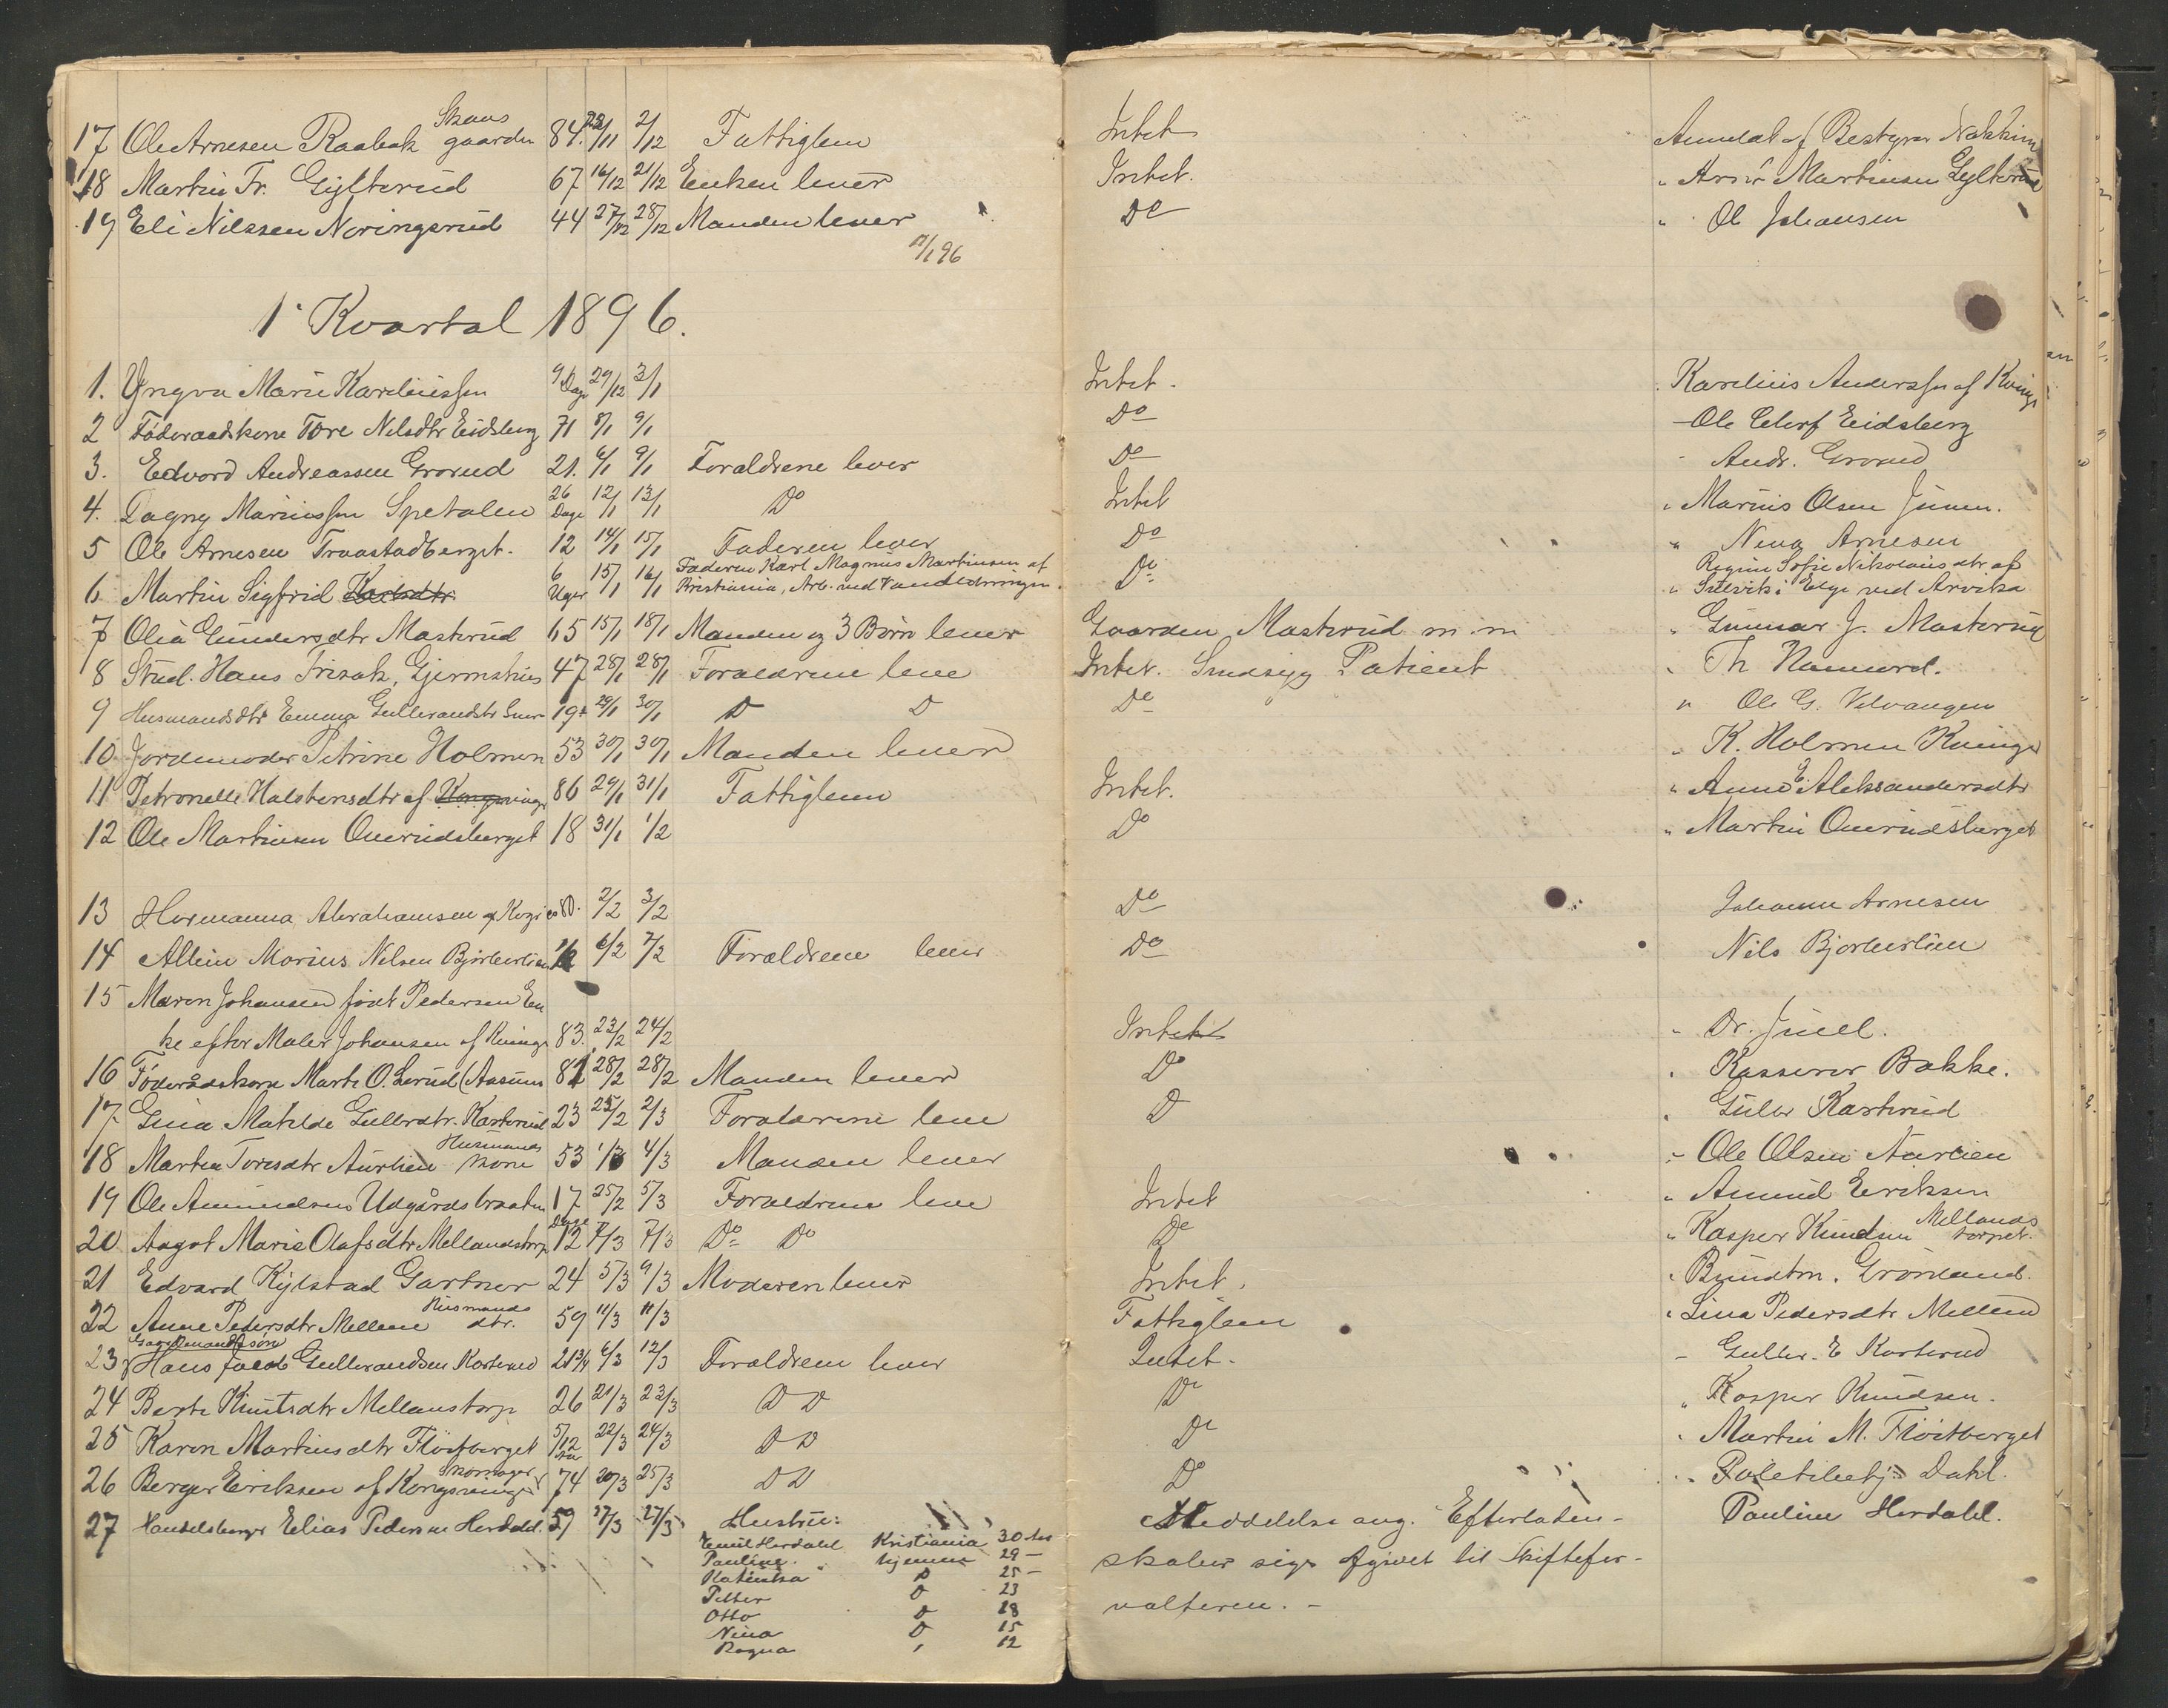 17 Ole Arnesen Raabak Skansgaarden 84. 28/11 2/12 Fattiglem Intet Anmeldt af Bestyrer Nökkim
18 Martin Fr. Gylterud 67 16/12 21/12 Enken lever Intet. " Martinsen Gylterud
19 Eli Nilssen Noringsrud 44 27/12 28/12 Manden lever Do " Ol Johansen
11/1 96
1' Kvartal 1896.
1. Yngva Marie Kareliussen 9 Dage 29/12 3/1 Intet. Karelius Anderssen af Kvingr
2 Föderaadskone Tore Nilsdtr Eidsberg 71 8/1 9/1 Do - Ole Elurf Eidsberg
3. Edvard Andreassen Grorud 21. 6/1 9/1 Foraldrene lever Do - Andr. Grorud
4. Dagny Mariussen Spetalen 26 Dage 12/1 13/1 Do Intet " Marius Olsen
5 Ole Arnesen Traastadberget. 12 14/1 15/1 Faderen lever Do " Nina Arnesen
6 Martin Sigfrid Karlsdtr 6 Uger 15/1 16/1 Faderen Karl Magnus Martinsen af Do Regine Sofie Nikolaisdtr af
Kristiania, Arb. ved Vandledningen. " Sulvik i Elge ved Arvika
7 Olia Gundersdtr Masterud 65 15/1 18/1 Manden og 3 Börn lever Gaarden Masterud m. m " Gunnar J. Masterud
8 Stud. Hans Frisak, Gjermshus 47 28/1 28/1 Foraldrene leve Intet. Sindsyg Patient " Th Hammerd.
9 Husmandsdtr Emma Gulbrandsdtr 19 29/1 30/1 D D Do " Ole G. Velvangen
10 Jordemoder Petrine Holmen 53 30/1 30/1 Manden lever " K. Holmen Kvingr
11 Petronelle Halstensdtr af Kongsvinger 86 29/1 31/1 Fattiglem Intet. " Anne G. Aleksandersdtr
12 Ole Martinsen Overudsberget 18 31/1 1/2 Do " Martin Overudsberget
13 Hermanna Abrahamsen af 80. 2/2 3/2 Do Johanne Arnesen
14 Albin Marius Nilsen Bjørberlien 12 6/2 7/2 Foraldrene lever Do Nils Bjorberlien
15 Maren Johansen födt Pedersen En
ke efter Maler Johansen af Kvingr 83. 23/2 24/2 Intet " Dr. Juell.
16 Föderådskone Marte O. Lerud (Aasum 81 28/2 28/2 Manden lever Do " Kasserer Bakke.
17 Gina Matilde Gulbrdtr. Kasterud 23 25/2 2/3 Foraldrene leve D " Gulbr Kasterud
18 Martea Toresdtr Aurlien Husmands kone 53 1/3 4/3 Manden lever " Ole Olsen Aurlien
19 Ole Amundsen Udgårdsbraaten 17 25/2 5/3 Foraldrene leve Intet " Amund Eriksen
20 Aagot Marie Olafsdtr Mellandstorp 12 Dage 7/3 7/3 Do Do Do " Kasper Knudsen Mellands torpet.
21 Edvard Kylstad Gartner 24 5/3 9/3 Moderen lever Intet. " Grönland.
22 Anne Pedersdtr Mellem Husmands dtr. 59 11/3 11/3 Fattiglem " Lina Pedersdtr Mellem
23 Gardmandssön Hans Jacob Gulbrandsen Kasterud 21 3/4 6/3 12/3 Foraldrene lever Intet. - Gulbr. E Kasterud
24 Berte Knutsdtr Mellanstorp 26 21/3 23/3 D D Do " Kasper Knudsen.
25 Karen Martinsdtr Flöitberget 5/12 Aar 22/3 24/3 D D Do " Martin M. Flöitberget
26 Berger Eriksen af Kongsvinger Skomager 74 20/3 25/3 D D Do " Politibetj. Dahl.
27 Handelsborger Elias Pedersen Herdahl. 59 27/3 27/3 Hustru: Meddelelse ang. Efterladen- Pauline Herdahl.
Emil Herdahl Kristiania 30 Aar
Pauline " hjemme 29 - skaber sige Afgivet til Skiftefor-
Katinka " D 25 -
Petter D 23
Otto D 18 valteren. -
Nina D 15
Ragna , 12